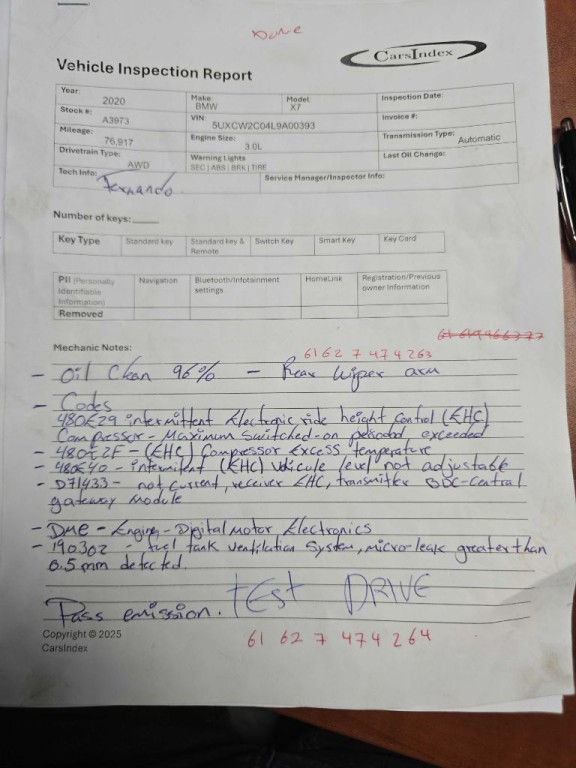 Done
CarsIndex
Vehicle Inspection Report
Year: 2020 Make: BMW Model: X7 Inspection Date:
Stock #: A3973 VIN: 5UXCW2C04L9A00393 Invoice #:
Mileage: 76,917 Engine Size: 3.0L Transmission Type: Automatic
Drivetrain Type: AWD Warning Lights SEC | ABS | BRK | TIRE Last Oil Change:
Tech Info: Fernando Service Manager/Inspector Info:
Number of keys:
Key Type Standard key Standard key & Remote Switch Key Smart Key Key Card
PII (Personally Identifiable Information) Navigation Bluetooth/Infotainment settings HomeLink Registration/Previous owner Information
Removed
Mechanic Notes:
61 62 7 474 263
- Oil Clean 96% - Rear wiper arm
- Codes
480E29 intermittent Electronic ride height Control (EHC)
Compressor - Maximum Switched-on perioded exceeded
- 480E2F - (EHC) Compressor Excess temperature
- 480E40 - intermitent (EHC) Vehicule level not adjustable
- D71433 - not current, receiver EHC, transmitter BDC-Central
gateway Module
- DME - Engine - Digital Motor Electronics
- 190302 - fuel tank ventilation System, micro-leak greater than
0.5 mm detected.
Pass emission. tESt DRIVE
Copyright © 2025
CarsIndex
61 62 7 474 264